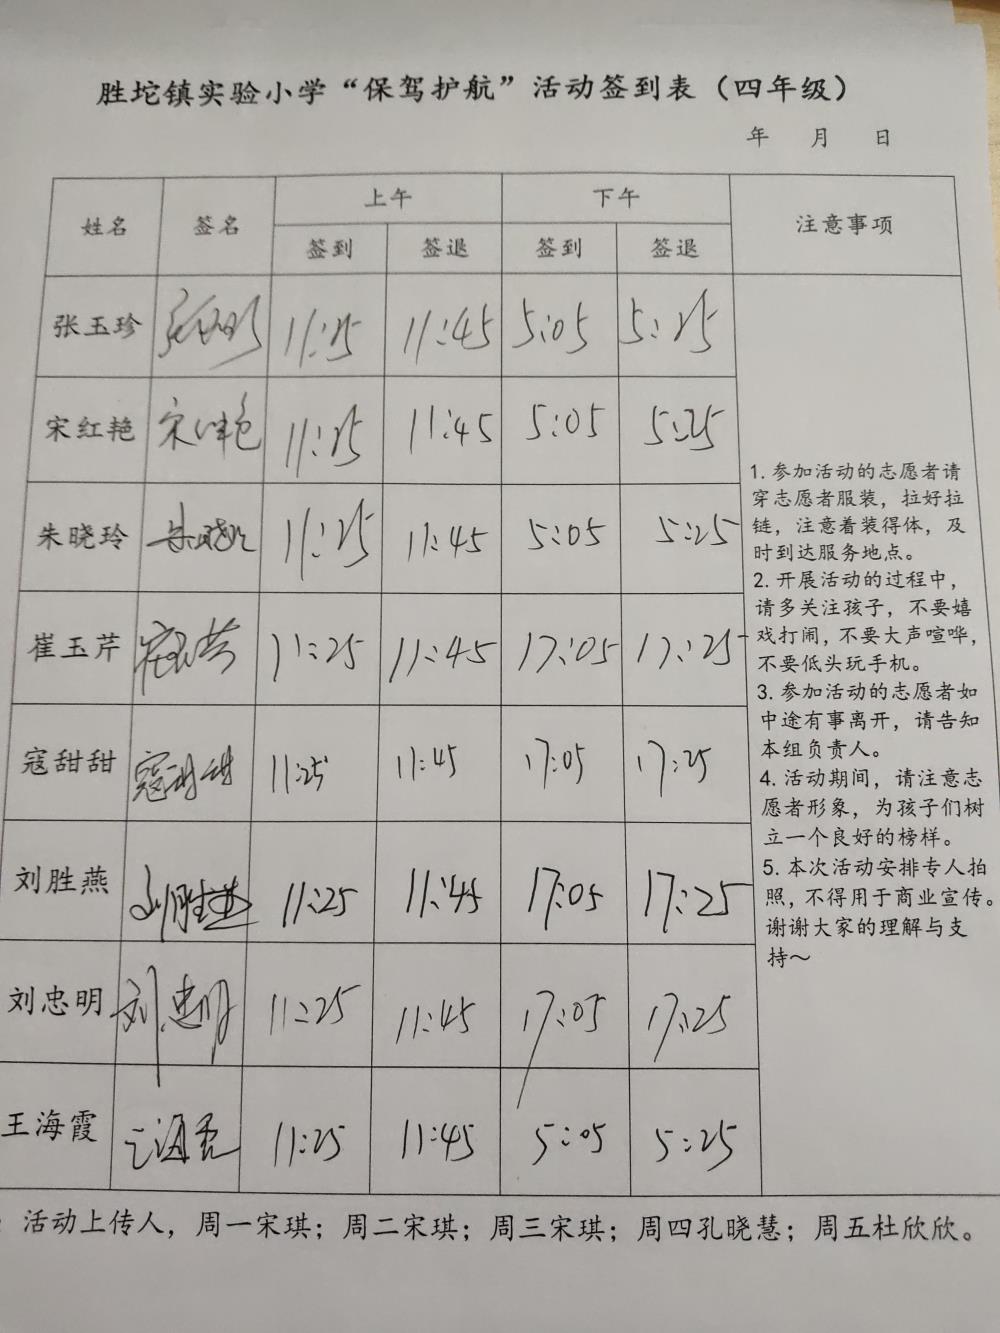 胜坨镇实验小学“保驾护航”活动签到表（四年级）
年 月 日
姓名 签名 上午 下午 注意事项
签到 签退 签到 签退
张玉珍 11:25 11:45 5:05 5:25
宋红艳 宋红艳 11:25 11:45 5:05 5:25
朱晓玲 朱晓玲 11:25 11:45 5:05 5:25
崔玉芹 崔玉芹 11:25 11:45 17:05 17:25
寇甜甜 寇甜甜 11:25 11:45 17:05 17:25
刘胜燕 刘胜燕 11:25 11:45 17:05 17:25
刘忠明 刘忠明 11:25 11:45 17:05 17:25
王海霞 王海霞 11:25 11:45 5:05 5:25
1. 参加活动的志愿者请
穿志愿者服装，拉好拉
链，注意着装得体，及
时到达服务地点。
2. 开展活动的过程中，
请多关注孩子，不要嬉
戏打闹，不要大声喧哗，
不要低头玩手机。
3. 参加活动的志愿者如
中途有事离开，请告知
本组负责人。
4. 活动期间，请注意志
愿者形象，为孩子们树
立一个良好的榜样。
5. 本次活动安排专人拍
照，不得用于商业宣传。
谢谢大家的理解与支
持～
活动上传人，周一宋琪；周二宋琪；周三宋琪；周四孔晓慧；周五杜欣欣。